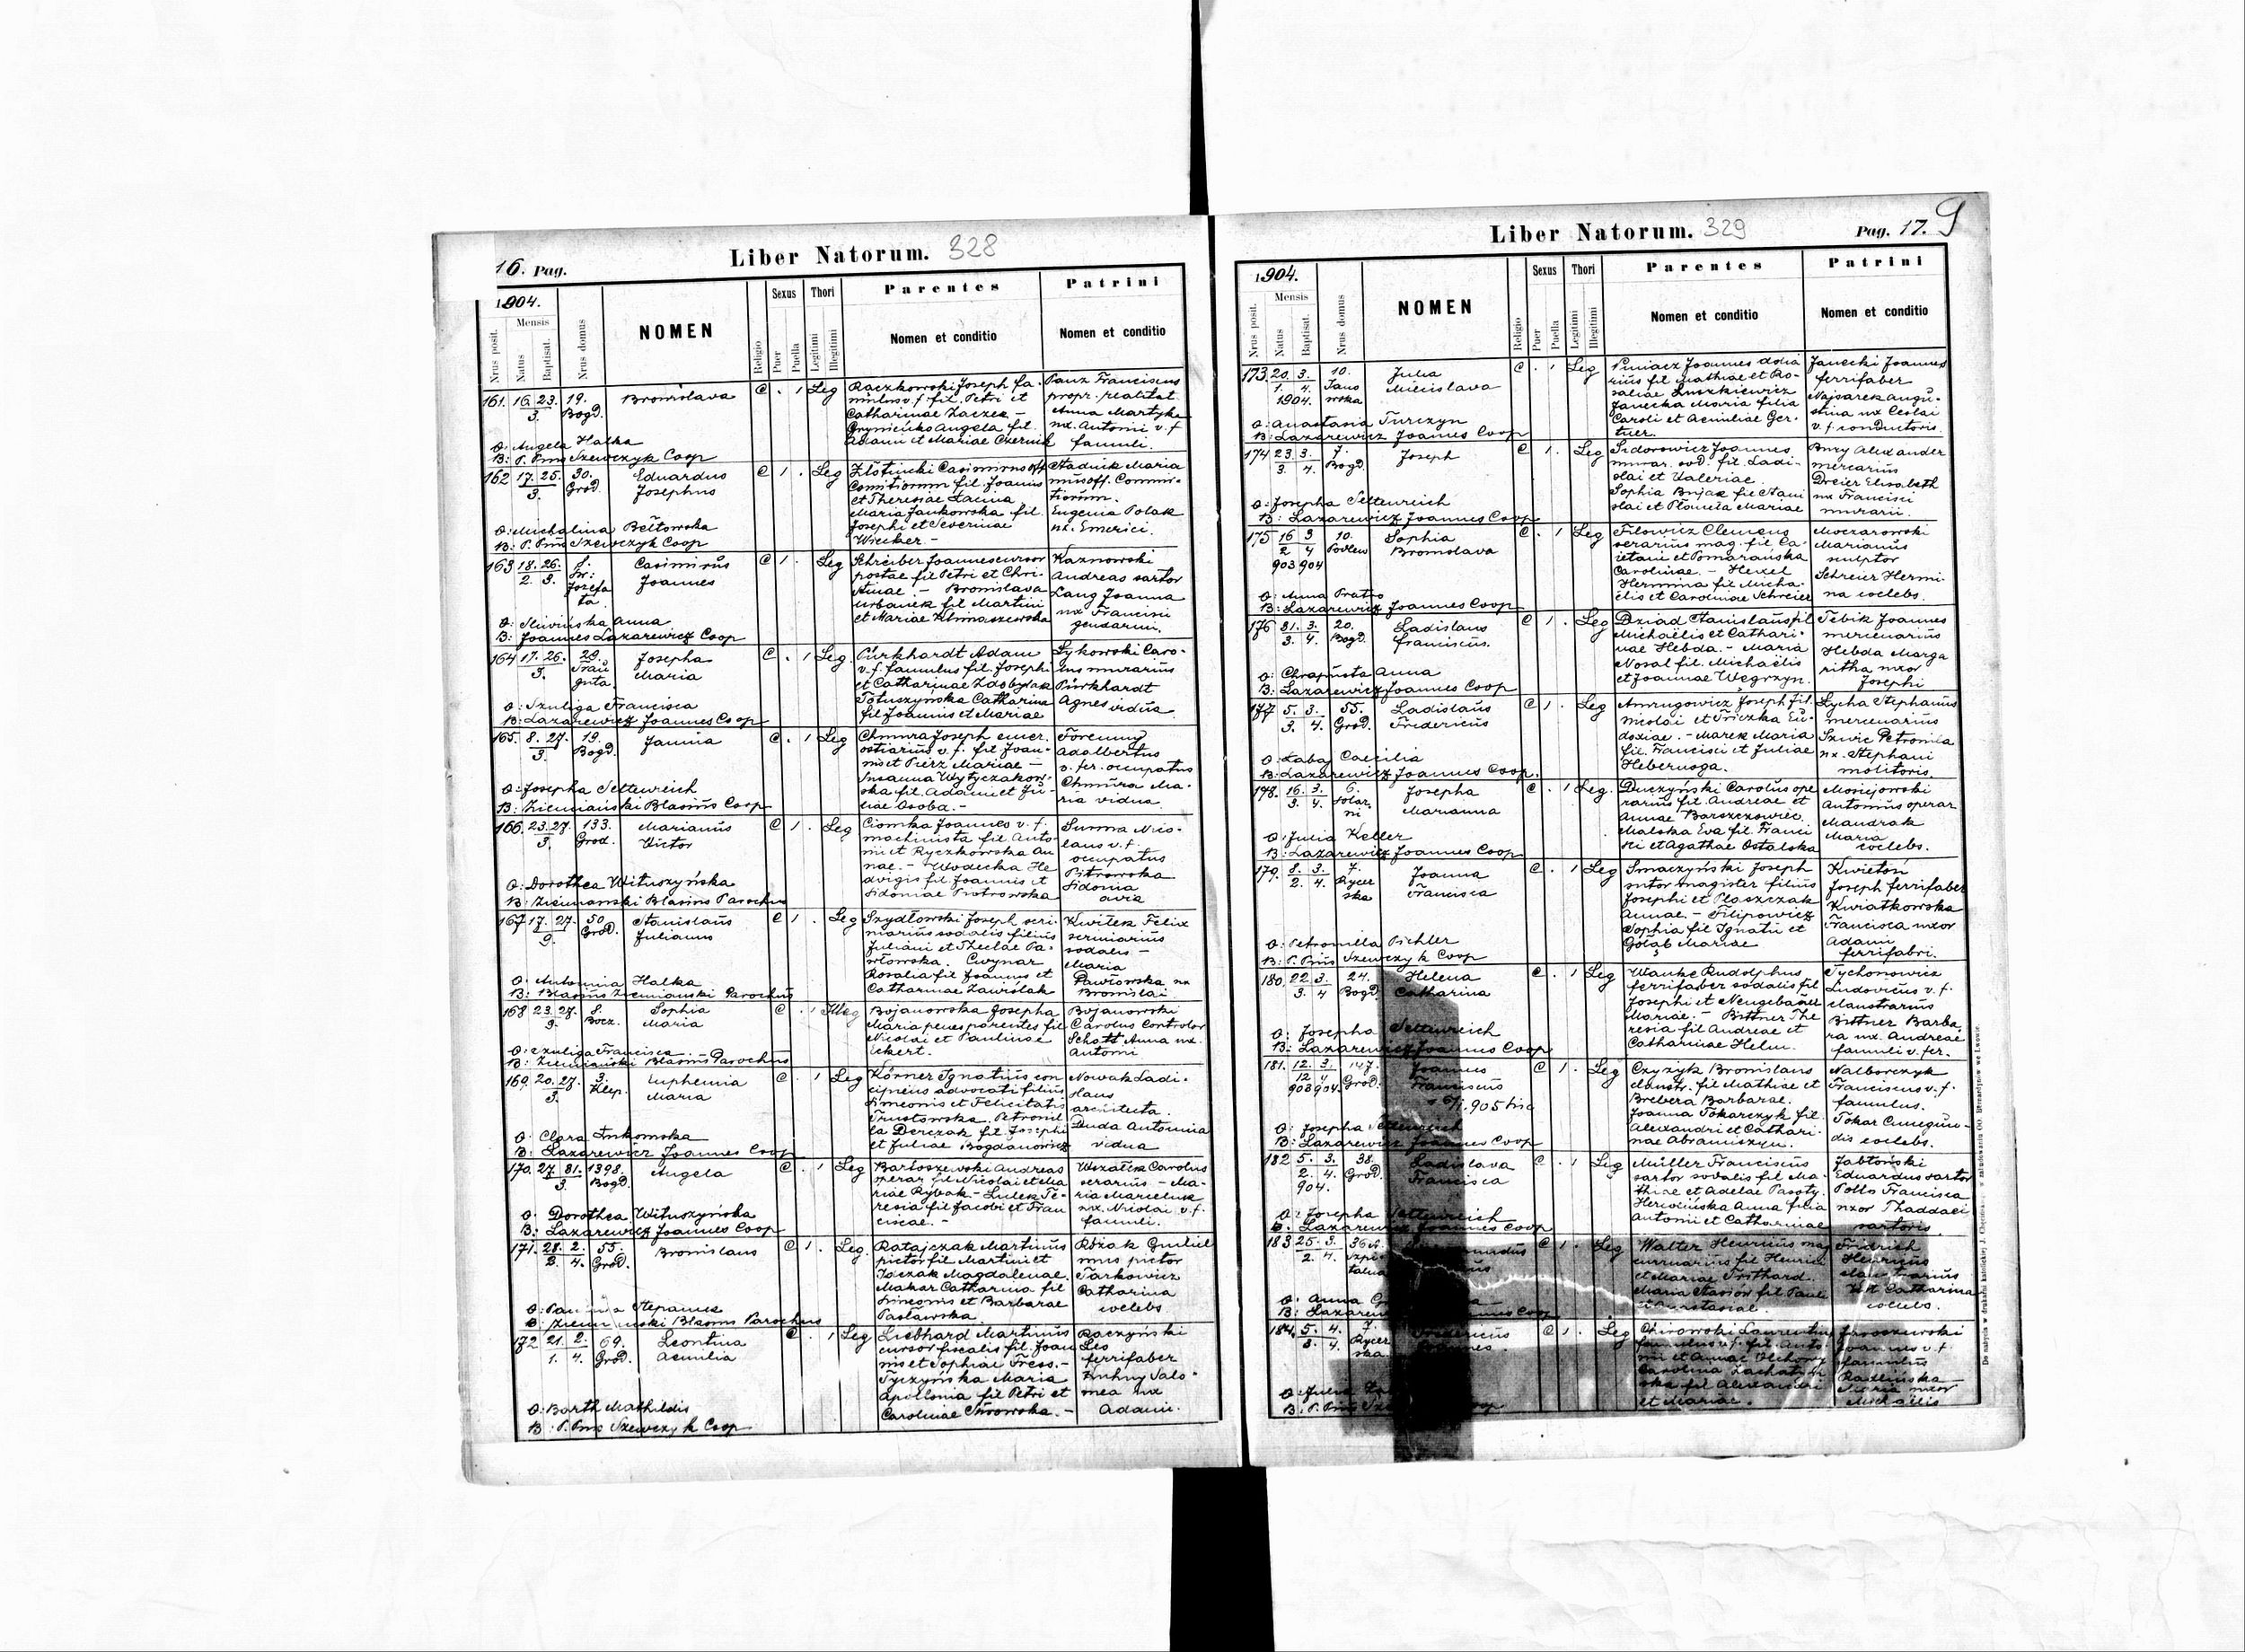 16. Pag.
Liber Natorum. 328
1904.
Nrus posit.
Mensis
Natus
Baptisat.
Nrus domus
NOMEN
Religio
Sexus
Puer
Puella
Thori
Legitimi
Illegitimi
Parentes
Nomen et conditio
Patrini
Nomen et conditio
161. 16. 23. 3. 19. Bogd.
Bronislava
C . 1 Leg
Raczkowski Joseph fa-
mulus v. f. fil. Petri et
Catharinae Zaczek -
Hrynieńko Angela fil.
Adami et Mariae Czernik
Panz Franciscus
propr. realitat.
Anna Martyka
ux. Antonii v. f.
famuli.
O: Angela Halka
B: P. Pius Szewczyk Coop
162 17. 25. 3. 30. Grod.
Eduardus
Josephus
C 1 . Leg
Casimirus off
Comitiorum fil. Joannis
et Theresiae Lanna
Maria Jankowska fil.
Josephi et Severinae
Wiecker. -
Stadnik Maria
Eugenia Polak
ux. Emerici.
O: Michalina Bełtowska
B: P. Pius Szewczyk Coop
163 18. 26. 2. 3.
Casimirus
Joannes
C 1 . Leg
Schreiber Joannes cursor
postae fil Petri et Chri-
stinae. - Bronislava
Urbanek fil Martini
et Mariae Klimaszewska
Kaznowski
Andreas sartor
Lang Joanna
ux Francisci
gendarmi.
O: Sliwińska Anna
B: Joannes Lazarewicz Coop
164 17. 26. 3. 29.
Josepha
Maria
C . 1 Leg.
Purkhardt Adam
v. f. famulus fil. Josephi
et Catharinae Zdobylak
Potuszyńska Catharina
fil Joannis et Mariae
Łykowski Caro-
lus murarius
Purkhardt
Agnes vidua.
O: Szuliga Francisca
B: Lazarewicz Joannes Coop
165. 8. 27. 3. 19. Bogd.
Janina
C . 1 Leg
Chmura Joseph emer.
ostiarius v. f. fil Joan-
nis et Pierz Mariae -
Susanna Wytyczakow-
ska fil. Adami et Ju-
liae Osoba. -
Foremny
Adalbertus
v. fer. occupatus
Chmura Ma-
ria vidua.
O: Josepha Seltenreich
B: Ziemiański Blasius Coop
166. 23. 27. 3. 133. Grod.
Marianus
Victor
C 1 . Leg
Ciomka Joannes v. f.
machinista fil. Anto-
nii et Ryczkowska An
nae. - Wodecka He
dvigis fil Joannis et
Sidoniae Piotrowska
Surma Nico-
laus v. f.
occupatus
Pitrowska
Sidonia
avia
O: Dorothea Wituszyńska
B: Ziemianski Blasius Parochus
167 17. 27. 50 Grod.
Stanislaus
Julianus
C 1 . Leg
Szydłowski Joseph scri-
niarius sodalis filius
Juliani et Theclae Pa-
włowska. Cwynar
Rosalia fil Joannis et
Catharinae Zawiślak
Kwitek Felix
scriniarius
sodalis -
Maria
Pawłowska ux
Bronislai
O: Antonina Halka
B: Blasius Ziemianski Parochus
168 23. 27. 3. 8. Bocz.
Sophia
Maria
C . 1 Illeg
Bojanowska Josepha
Maria penes parentes fil
Nicolai et Paulinae
Eckert.
Bojanowski
Carolus Controlor
Schott Anna ux.
Antonii
O: Szuliga Francisca
B: Ziemiański Blasius Parochus
169. 20. 27. 3. 3. Klep.
Euphemia
Maria
C . 1 Leg
Körner Ignatius con
cipiens advocati filius
Simeonis et Felicitatis
Trustowska. Petronil
la Derczak fil Josephi
et Juliae Bogdanowicz
Nowak Ladi-
slaus
architecta.
Duda Antonina
vidua
O: Clara
B: Lazarewicz Joannes Coop
170. 27. 31. 3. 1398. Bogd.
Angela
C . 1 Leg
Bartoszewski Andreas
operar. fil Nicolai et Ma
riae Rybak - Lulek Te-
resia fil Jacobi et Fran
ciscae. -
Wszałek Carolus
serarius - Ma-
ria Marceluk
ux. Nicolai v. f.
famuli.
O: Dorothea Wituszyńska
B: Lazarewicz Joannes Coop
171. 28. 2. 3. 4. 55. Grod.
Bronislaus
C 1 . Leg.
Ratajczak Martinus
pictor fil Martini et
Jaczak Magdalenae.
Makar Catharina fil
Simeonis et Barbarae
Pasławska.
Rożak Guiliel
mus pictor
Tarkowicz
Catharina
coelebs
O: Stepaniuk
B: Blasius Parochus
172 21. 2. 1. 4. 69. Grod.
Leontina
Aemilia
C . 1 Leg
Liebhard Martinus
cursor fiscalis fil. Joan
nis et Sophiae Tress. -
Tyczyńska Maria
Apollonia fil Petri et
Carolinae
Raczyński
Leo
ferrifaber
Kuhny Salo-
mea ux
Adami.
O: Barth Mathildis
B: P. Pius Szewczyk Coop
Liber Natorum. 329
Pag. 17. 9
1904.
Nrus posit.
Mensis
Natus
Baptisat.
Nrus domus
NOMEN
Religio
Sexus
Puer
Puella
Thori
Legitimi
Illegitimi
Parentes
Nomen et conditio
Patrini
Nomen et conditio
173. 20. 3. 1. 4. 1904. 10. Janowska
Julia
Miecislava
C . 1 Leg
Joannes dolia
rius fil Mathiae et Ro-
saliae Luszkiewicz
Janecka Maria filia
Caroli et Aemiliae Ger-
tner.
Janecki Joannes
ferrifaber
Najsarek Augu-
stina ux Ceslai
v. f. conductoris.
O: Anastasia Turczyn
B: Lazarewicz Joannes Coop
174 23. 3. 3. 4. 7. Bogd.
Joseph
C 1 . Leg
Sidorowicz Joannes
murar. sod. fil. Ladi-
slai et Valeriae.
Sophia Bujak fil Stani
slai et Mariae
Bury Alexander
mercarius
Dreier Elisabeth
ux Francisci
murarii.
O: Josepha Seltenreich
B: Lazarewicz Joannes Coop
175 16 3 2 4 903 904 10.
Sophia
Bronislava
C . 1 Leg
Filowicz Clemens
serarius mag. fil. Ca-
jetani et Pomarańska
Carolinae. - Hexel
Hermina fil Micha-
elis et Carolinae Schreier
Moczarowski
Marianus
sculptor
Schreier Hermi-
na coelebs.
O: Anna
B: Lazarewicz Joannes Coop
176 31. 3. 3. 4. 20. Bogd.
Ladislaus
Franciscus.
C 1 . Leg
Dziad Stanislaus fil
Michaëlis et Cathari-
nae Hebda. - Maria
Nosal fil. Michaëlis
et Joannae Węgrzyn.
Tebik Joannes
mercenarius
Hebda Marga
ritha uxor
Josephi
O: Chrapusta Anna
B: Lazarewicz Joannes Coop
177 5. 3. 3. 4. 55. Grod.
Ladislaus
Fredericus
C 1 . Leg
Joseph fil.
Nicolai et Eu-
doxiae. - Marek Maria
fil. Francisci et Juliae
Lycha Stephanus
mercenarius
Szwic Petronila
ux. Stephani
molitoris.
O: Łabaj Caecilia
B: Lazarewicz Joannes Coop.
178. 16. 3. 3. 4. 6.
Josepha
Marianna
C . 1 Leg.
Duczyński Carolus ope
rarius fil. Andreae et
Annae Barszczowiec.
Malska Eva fil. Franci
sci et Agathae Ostalska
Moniejowski
Antonius operar
Mandrak
Maria
coelebs.
O: Julia Keller
B: Lazarewicz Joannes Coop
179. 8. 3. 2. 4. 7. Rycerska
Joanna
Francisca
C . 1 Leg
Smaczyński Joseph
sutor magister filius
Josephi et Ploszczak
Annae. - Filipowicz
Sophia fil Ignatii et
Gołąb Mariae
Kwietoń
Joseph ferrifaber
Kwiatkowska
Francisca uxor
Adami
ferrifabri.
O: Petronilla Pichler
B: P. Pius Szewczyk Coop
180. 22. 3. 3. 4 24. Bogd.
Helena
Catharina
C . 1 Leg
Wanke Rudolphus
ferrifaber sodalis fil
Josephi et Neugebauer
Mariae. - Bittner The
resia fil Andreae et
Catharinae Helm.
Tychonowicz
Ludovicus v. f.
claustrarius
Bittner Barba-
ra ux. Andreae
famuli v. fer.
O: Josepha Seltenreich
B: Lazarewicz Joannes Coop
181. 12. 3. 12 4 903 904. 147. Grod.
Joannes
Franciscus
C 1 . Leg
Czyżyk Bronislaus
claustr. fil Mathiae et
Brebera Barbarae.
Joanna Tokarczyk fil.
Alexandri et Cathari-
nae Abramiszyn.
Nalborczyk
Franciscus v. f.
famulus.
Tokar Cunegun-
dis coelebs.
O: Josepha Seltenreich
B: Lazarewicz Joannes Coop
182 5. 3. 2. 4. 904. 38. Grod.
Ladislava
Francisca
C . 1 Leg
Müller Franciscus
sartor sodalis fil Ma-
thiae et Adelae Pasoty.
Anna filia
Antonii et Catharinae
Jabłoński
Eduardus sartor
Pollo Francisca
uxor Thaddaei
sartoris.
O: Josepha Seltenreich
B: Lazarewicz Joannes Coop
183 25. 3. 2. 4. 36
C 1 . Leg
Walter Henricus
fil Henrici
et Mariae
Maria fil Pauli
et Anastasiae.
Fridrich
Henricus
Catharina
coelebs.
O: Anna
B: Lazarewicz Joannes Coop
184. 5. 4. 3. 4. 7. Rycerska
C 1 . Leg
Laurentius
famulus v. f. fil. Anto
nii et Annae
Carolina
fil Alexandri
et Mariae.
Jaroszewski
Joannes v. f.
famulus
Maria uxor
Michaëlis
O: Julia
B: P. Pius